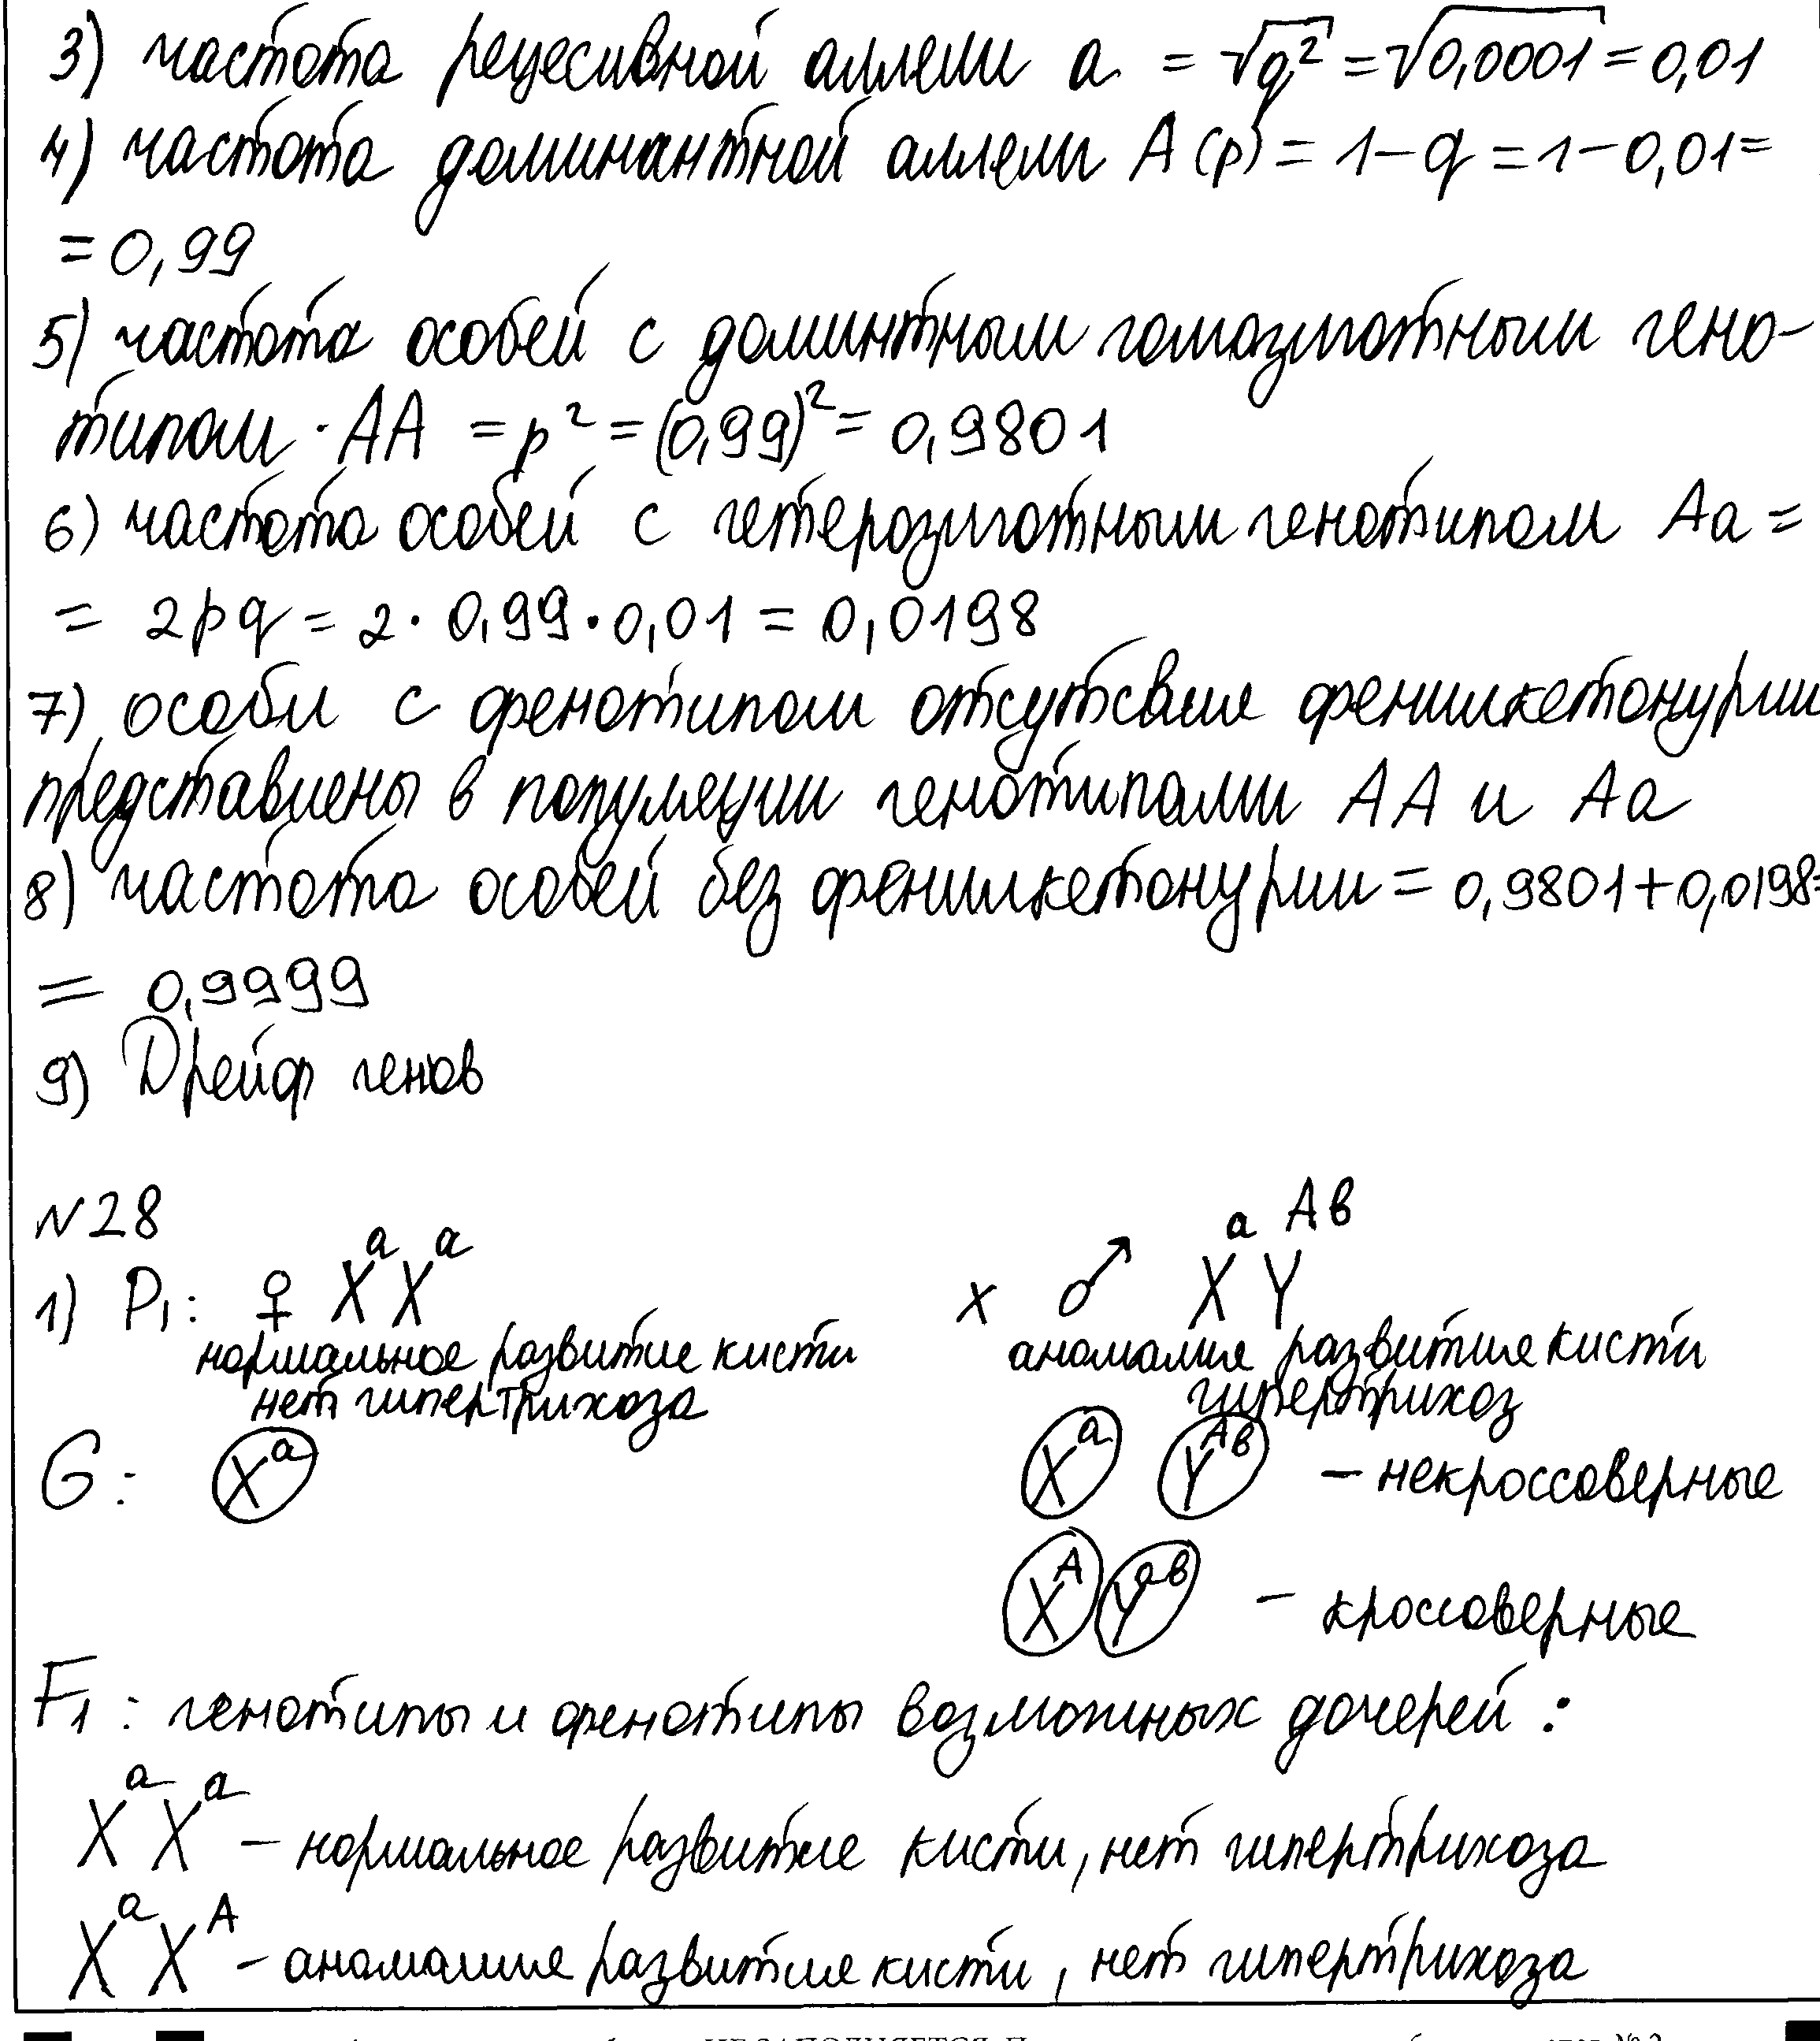 3) частота рецесивной аллели a = √q² = √0,0001 = 0,01
4) частота доминантной аллели A (p) = 1 – q = 1 – 0,01 =
= 0,99
5) частота особей с доминтным гомозиготным гено-
типом · AA = p² = (0,99)² = 0,9801
6) частота особей с гетерозиготным генотипом Aa =
= 2pq = 2 · 0,99 · 0,01 = 0,0198
7) особи с фенотипом отсутсвие фенилкетонурии
представлены в популяции генотипами AA и Aa
8) частота особей без фенилкетонурии = 0,9801 + 0,0198 =
= 0,9999
9) Дрейф генов
N28
1) P₁: ♀ XᵃXᵃ x ♂ XᵃYᴬᵇ
нормальное развитие кисти аномалие развитие кисти
нет гипертрихоза гипертрихоз
G: Xᵃ Xᵃ Yᴬᵇ – некроссоверные
Xᴬ Yᵃᵇ – кроссоверные
F₁: генотипы и фенотипы возможных дочерей:
XᵃXᵃ – нормальное развитие кисти, нет гипертрихоза
XᵃXᴬ – аномалие развитие кисти, нет гипертрихоза